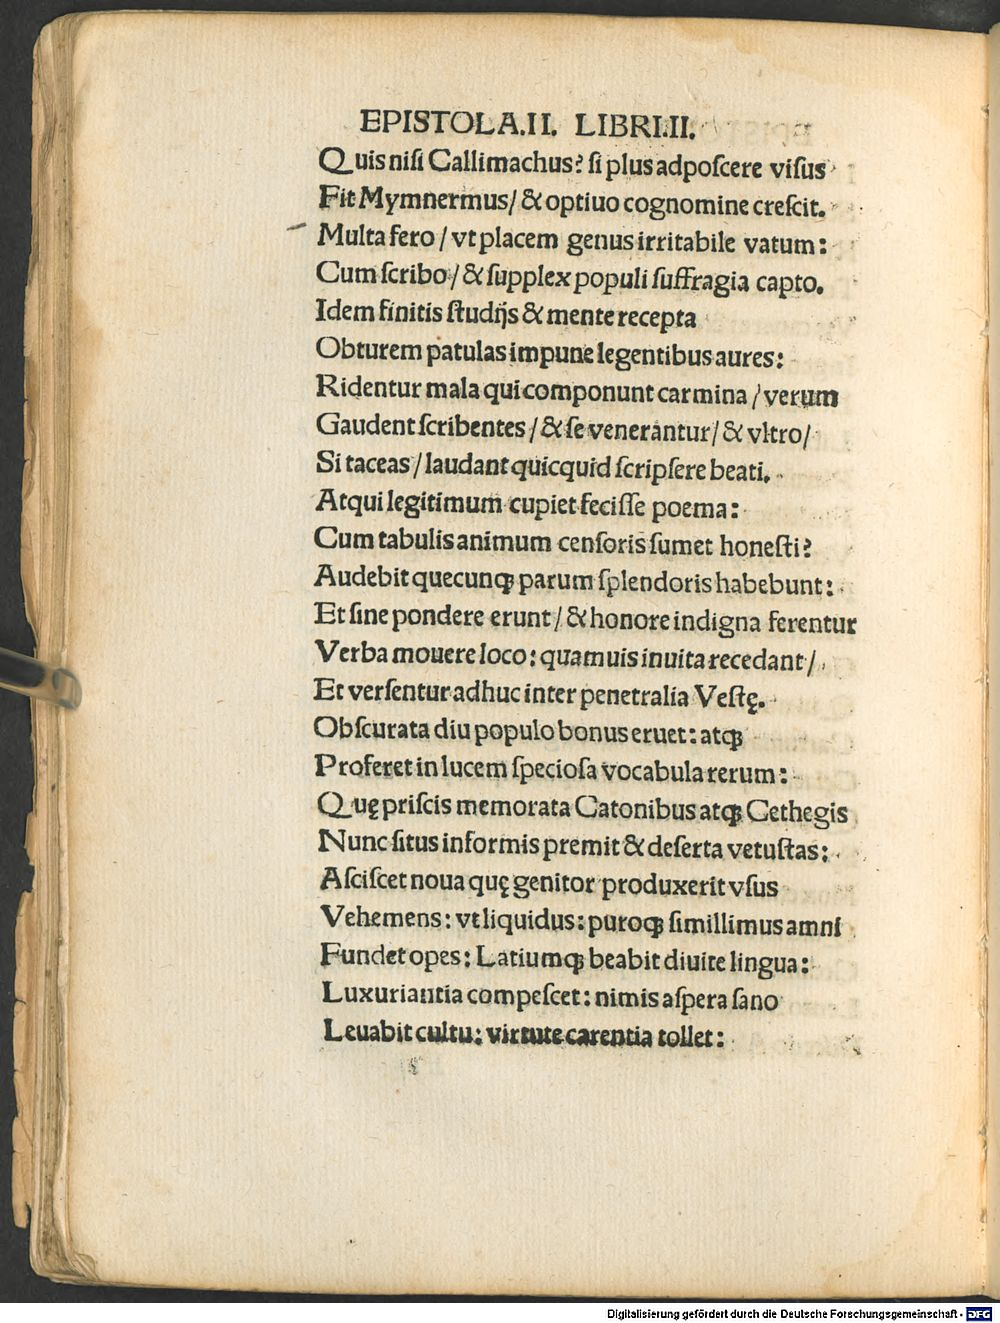 EPISTOLA.II. LIBRI.II.
Quis niſi Callimachus? ſi plus adpoſcere viſus
Fit Mymnermus/ & optiuo cognomine creſcit.
Multa fero / vt placem genus irritabile vatum:
Cum ſcribo / & ſupplex populi ſuffragia capto.
Idem finitis ſtudijs & mente recepta
Obturem patulas impune legentibus aures:
Ridentur mala qui componunt carmina / verum
Gaudent ſcribentes / & ſe venerantur / & vltro /
Si taceas / laudant quicquid ſcripſere beati.
Atqui legitimum cupiet feciſſe poema:
Cum tabulis animum cenſoris ſumet honeſti?
Audebit quecunqꝫ parum ſplendoris habebunt:
Et ſine pondere erunt / & honore indigna ferentur
Verba mouere loco: quamuis inuita recedant /
Et verſentur adhuc inter penetralia Veſtę.
Obſcurata diu populo bonus eruet: atqꝫ
Proferet in lucem ſpecioſa vocabula rerum:
Quę priſcis memorata Catonibus atqꝫ Cethegis
Nunc ſitus informis premit & deſerta vetuſtas:
Aſciſcet noua quę genitor produxerit vſus
Vehemens: vt liquidus: puroqꝫ ſimillimus amni
Fundet opes: Latiumqꝫ beabit diuite lingua:
Luxuriantia compeſcet: nimis aſpera ſano
Leuabit cultu: virtute carentia tollet:
Digitalisierung gefördert durch die Deutsche Forschungsgemeinschaft - DFG